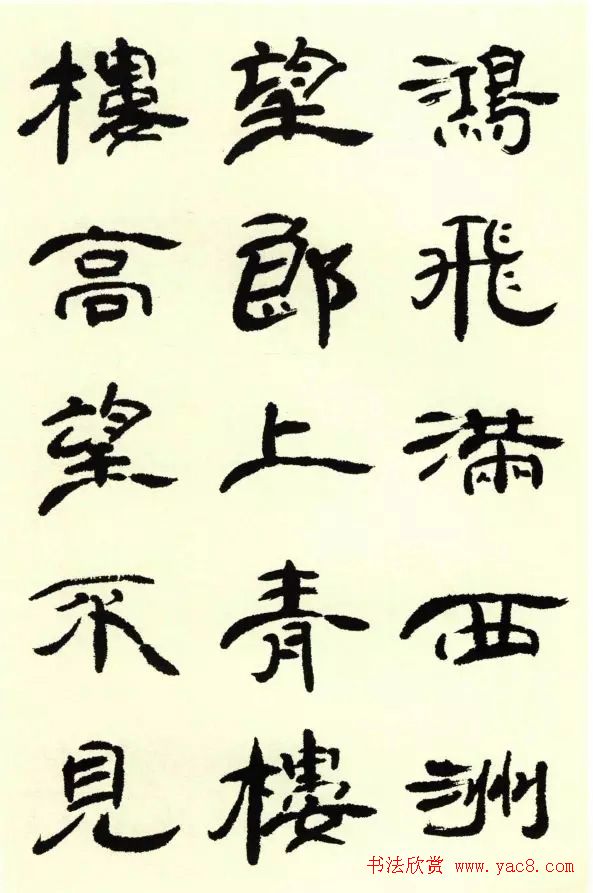 鴻飛滿西洲
望郎上青樓
樓高望不見
书法欣赏 www.yac8.com